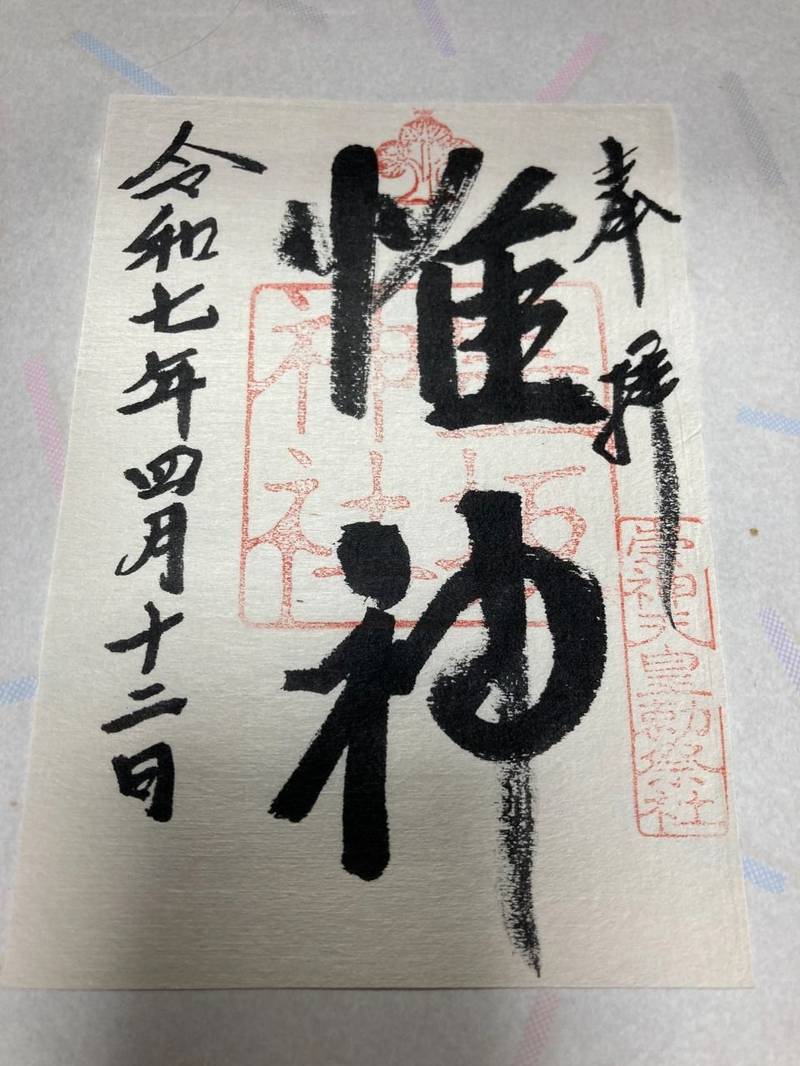 奉拝
崇神天皇勅祭社
惟神
神社
令和七年四月十二日